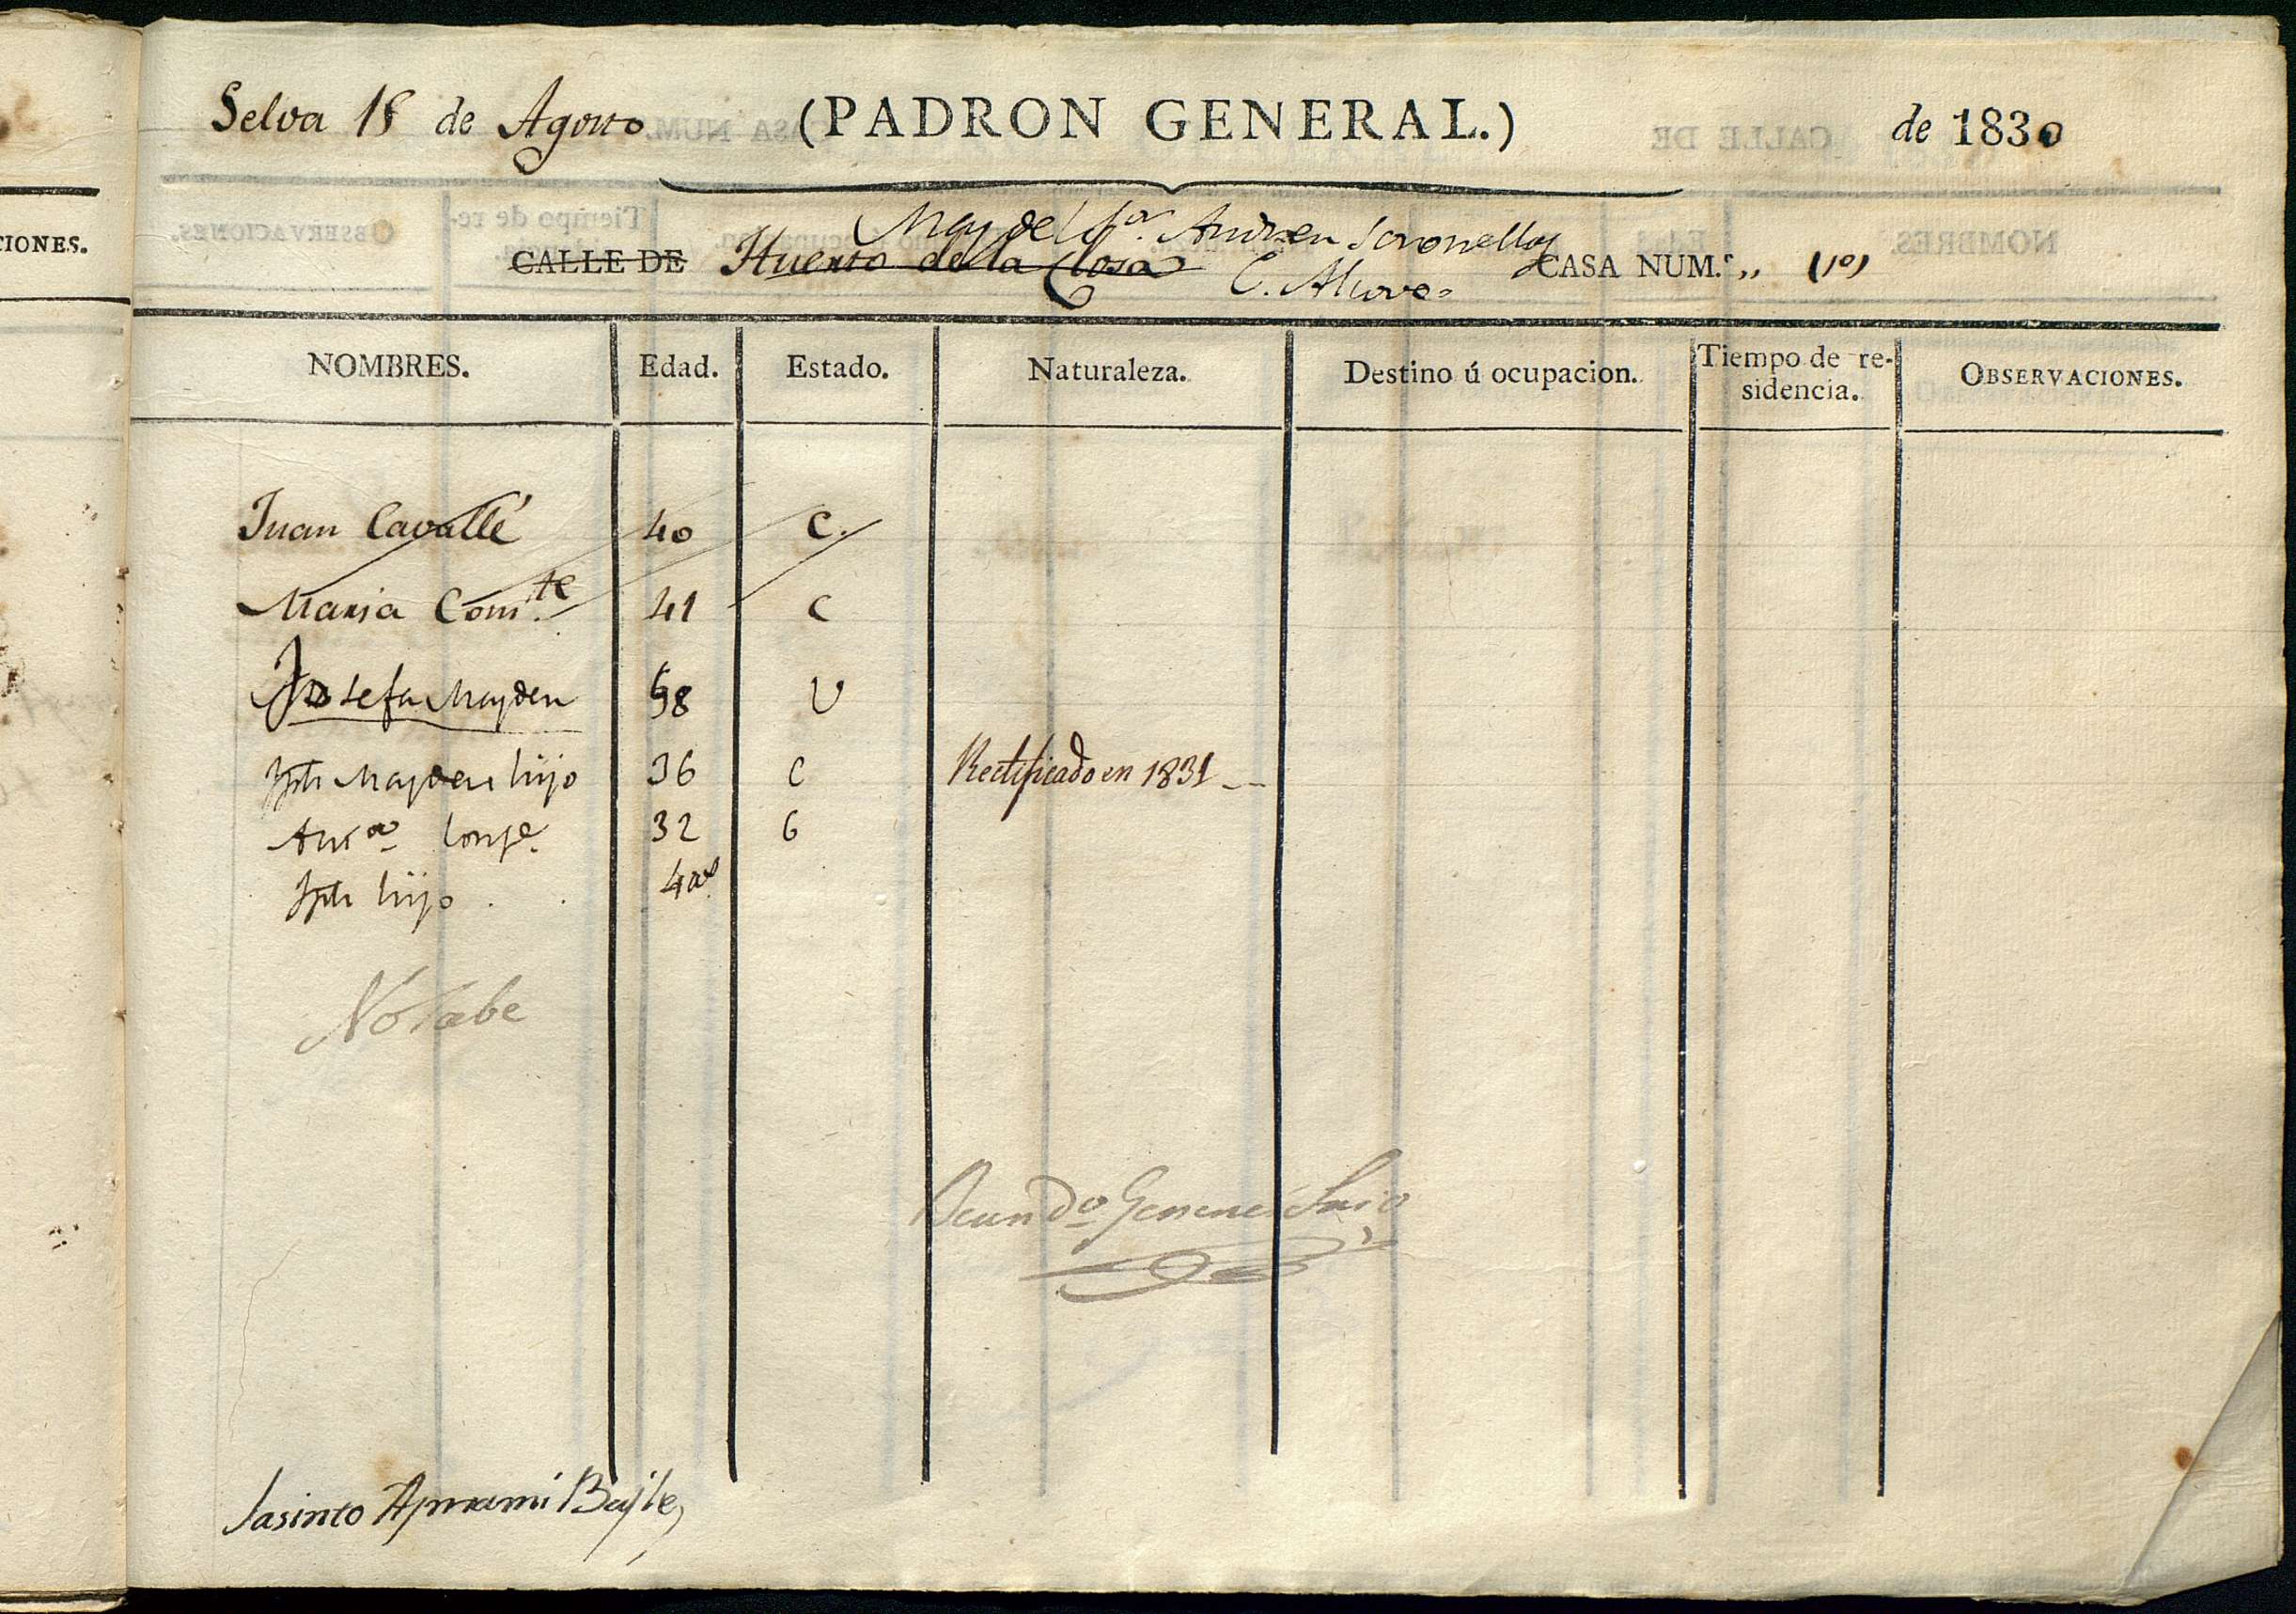 CIONES.
Selva 18 de Agosto (PADRON GENERAL.) de 1830
Mas del Sor. Andreu
CALLE DE Huerto de la Closa CASA NUM.º „ (10)
C. Alcover
NOMBRES. Edad. Estado. Naturaleza. Destino ú ocupacion. Tiempo de re-
sidencia. OBSERVACIONES.
Juan Cavallé 40 C.
Maria Com.te 41 C
Josefa Mayden 58 V
Jph Mayden hijo 36 C Rectificado en 1831
Anta. 32 C
Jph hijo 4 as
No sabe
Jasinto Bayle